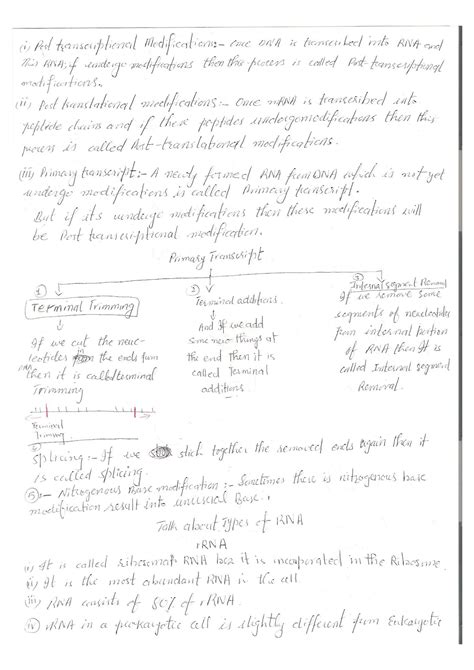 (i) Post transcriptional Modification:- Once DNA is transcribed into RNA and
This RNA, if undergo modifications then this process is called Post-transcriptional
modifications.
(ii) Post translational modifications:- Once mRNA is transcribed into
peptide chains and if these peptides undergo modifications then this
process is called Post-translational modifications.
(iii) Primary transcript:- A newly formed RNA from DNA which is not yet
undergo modifications is called Primary transcript.
But if its undergo modifications then these modifications will
be Post transcriptional modification.
Primary Transcript
1
Terminal Trimming
If we cut the neuc-
leotides from the ends from
RNA then it is called terminal
Trimming
Terminal
Trimming
2
Terminal additions
And If we add
some new things at
the end Then it is
called Terminal
additions.
3
Internal segment Removal
If we remove some
segments of neucleotides
from internal portion
of RNA then It is
called Internal segment
Removal.
Splicing:- If we stick together the removed ends again then it
is called splicing.
5:- Nitrogenous Base modification:- Sometimes there is nitrogenous base
modification result into unusual Base.
Talk about Types of RNA
rRNA
(i) It is called ribosomal RNA bcz it is incorporated in the Ribosome.
(ii) It is the most abundant RNA in the cell
(iii) RNA consists of 80% of rRNA.
(iv) rRNA in a prokaryotic cell is slightly different from Eukaryotic